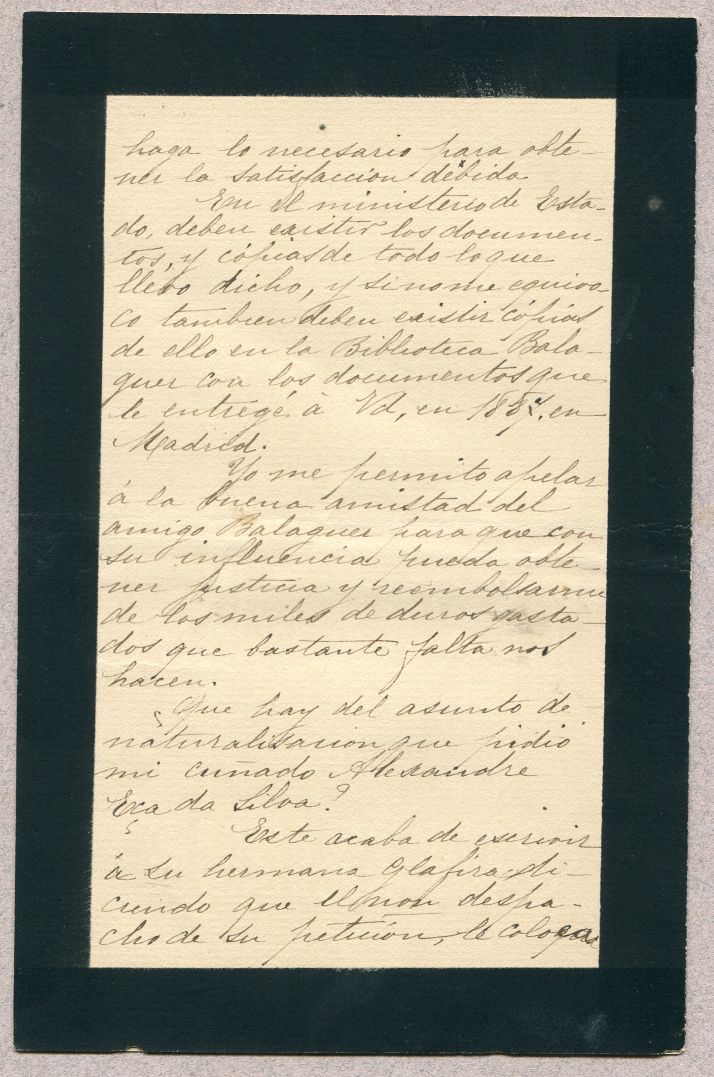 haga lo necesario para obte-
ner la satisfaccion debida
En el ministerio de Esta-
do, deben existir los documen-
tos, y cópias de todo lo que
llevo dicho, y si no me equivo-
co tambien deben existir cópias
de ello en la Biblioteca Bala-
guer con los documentos que
le entregé à Vd, en 1887. en
Madrid.
Yo me permito apelar
á la buena amistad del
amigo Balaguer para que con
su influencia pueda obte-
ner justicia y reembolsarme
de los miles de duros gasta-
dos que bastante falta nos
hacen.
¿Que hay del asunto de
naturalisacion que pidió
mi cuñado Alexandre
Eça da Silva?
Este acaba de escrivir
á su hermana Glafira di-
ciendo que el non despa-
cho de su petición, le coloca